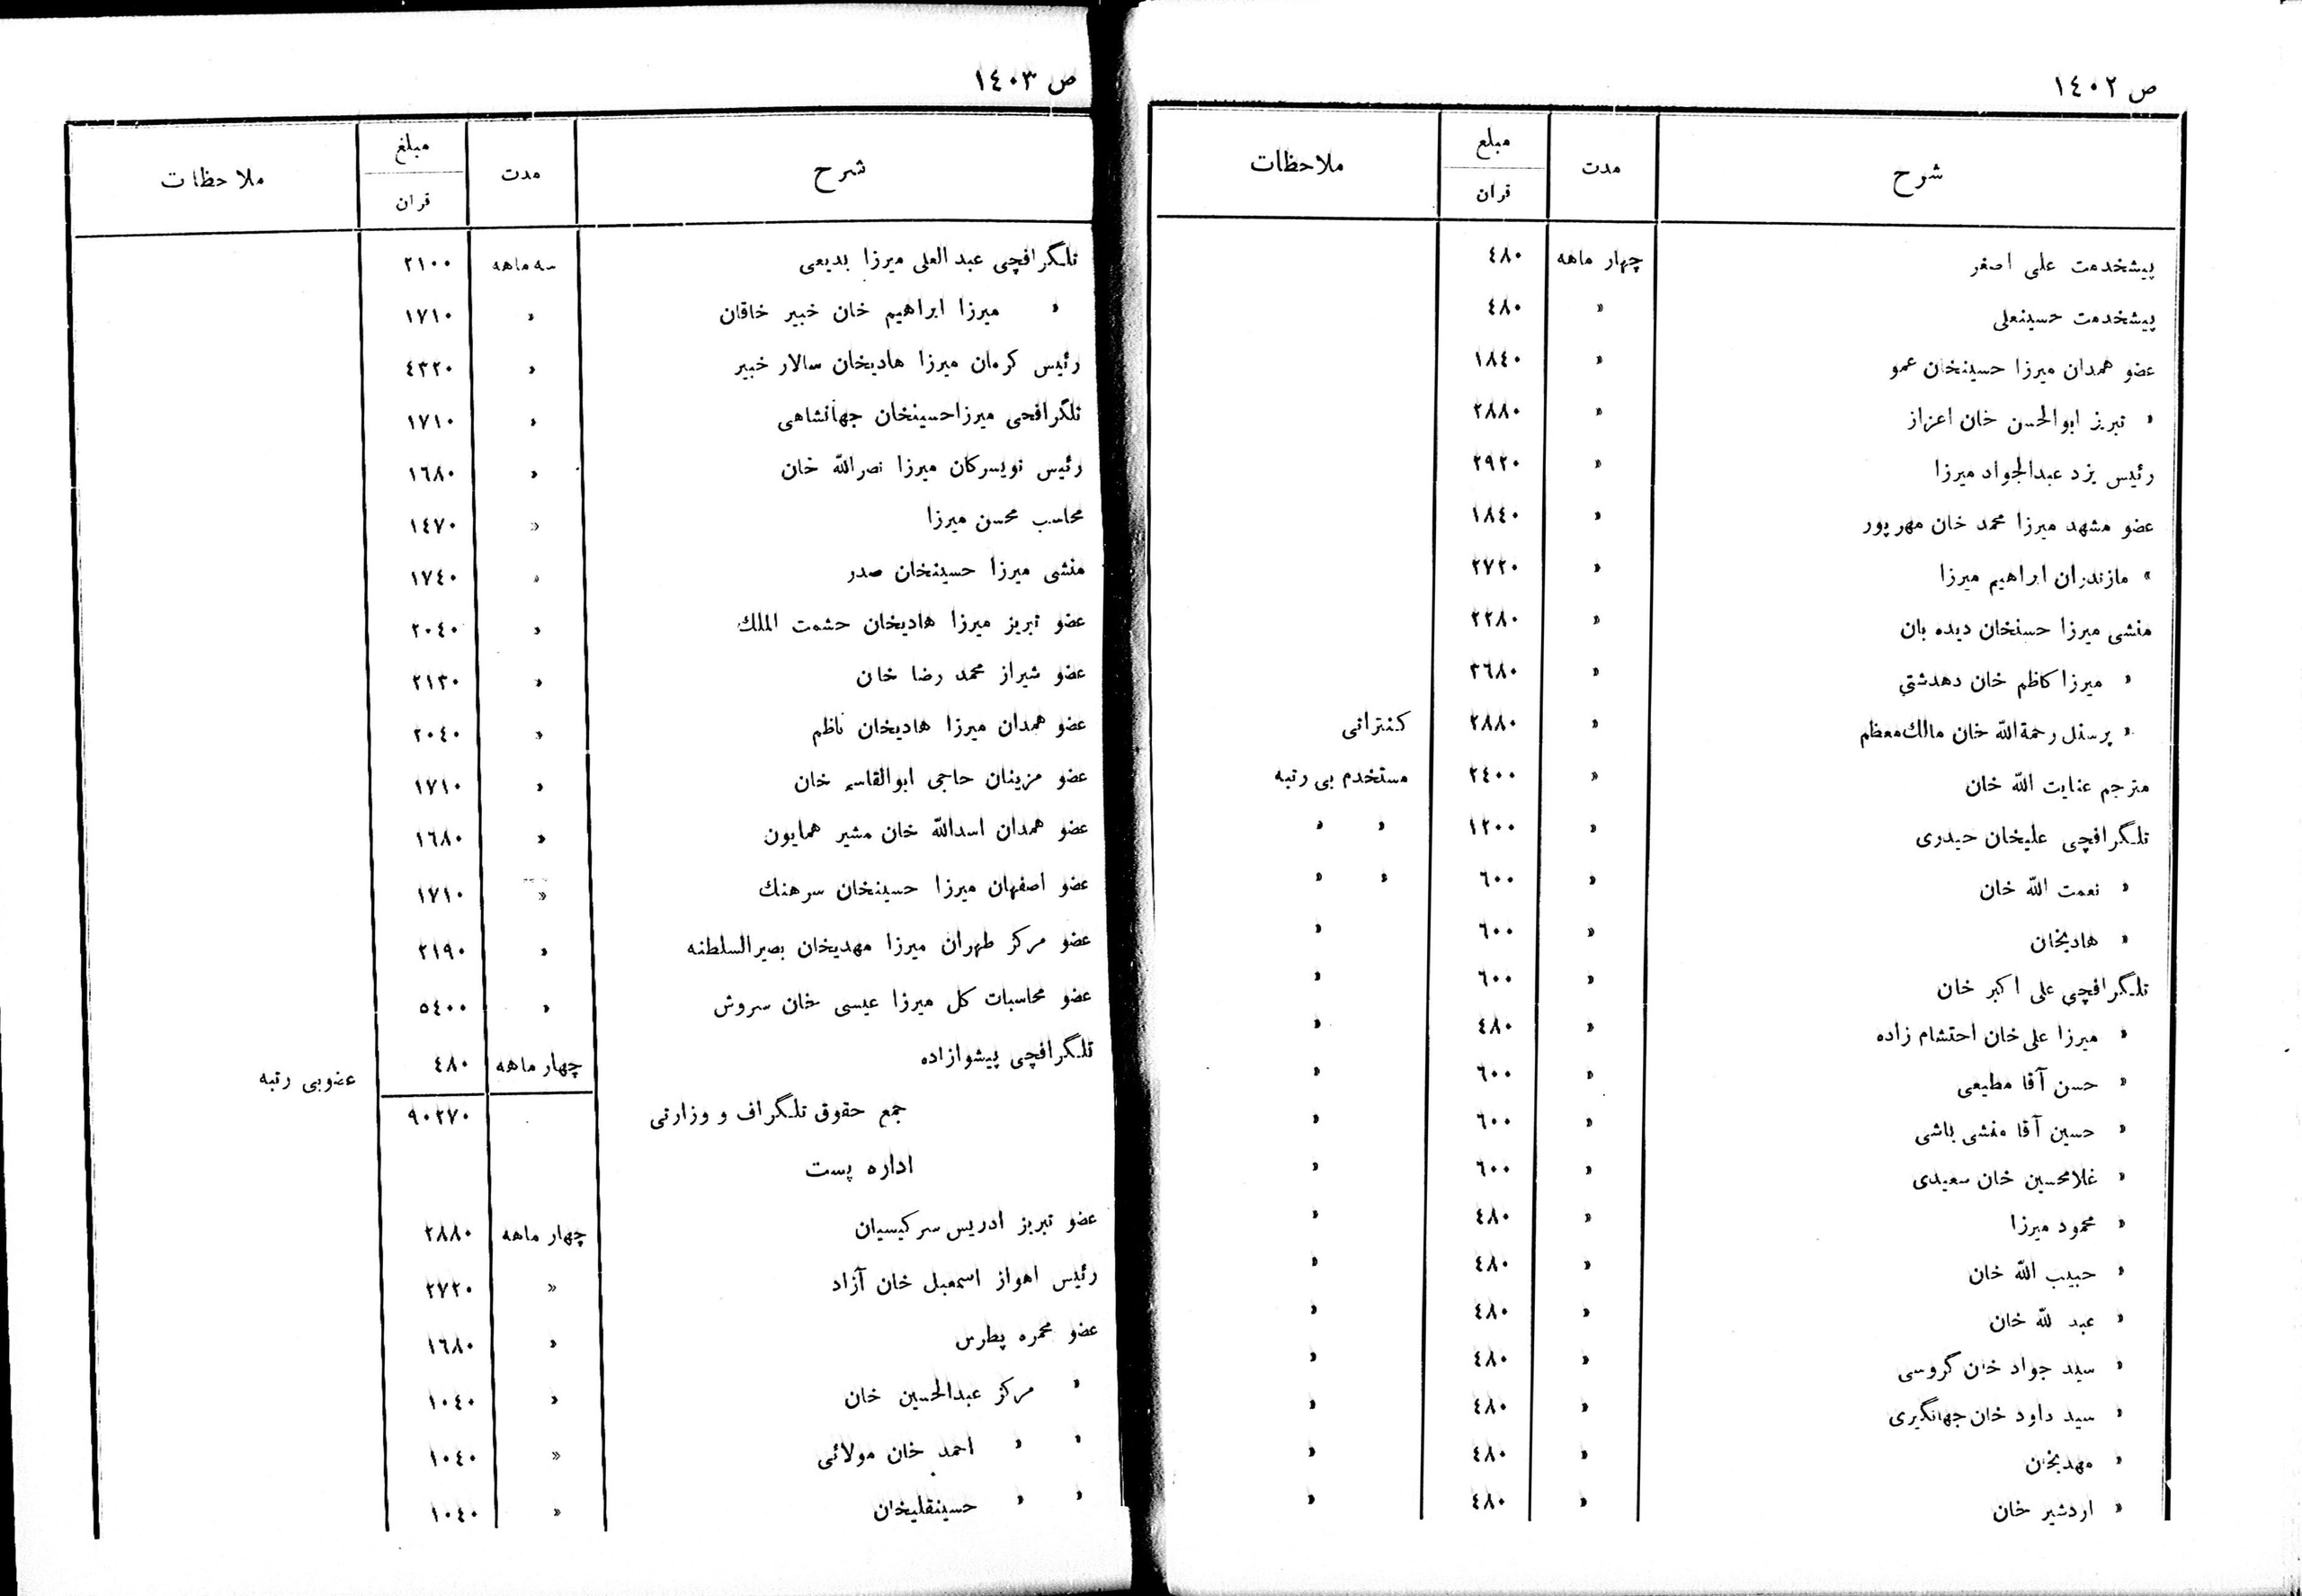 ص ١٤٠٢
شرح مدت مبلغ قران ملاحظات
پیشخدمت علی اصغر چهار ماهه ٤٨٠
پیشخدمت حسینعلی » ٤٨٠
عضو همدان میرزا حسینخان عمو » ١٨٤٠
» تبریز ابوالحسن خان اعزاز » ٢٨٨٠
رئیس یزد عبدالجواد میرزا » ٢٩٢٠
عضو مشهد میرزا محمد خان مهرپور » ١٨٤٠
» مازندران ابراهیم میرزا » ٢٧٢٠
منشی میرزا حسنخان دیده بان » ٢٢٨٠
» میرزا کاظم خان دهدشتی » ٣٦٨٠
» پرسنل رحمة‌الله خان مالك معظم » ٢٨٨٠ کنتراتی
مترجم عنایت الله خان » ٢٤٠٠ مستخدم بی رتبه
تلگرافچی علیخان حیدری » ١٢٠٠ » »
» نعمت الله خان » ٦٠٠ » »
» هادیخان » ٦٠٠ »
تلگرافچی علی اکبر خان » ٦٠٠ »
» میرزا علی خان احتشام زاده » ٤٨٠ »
» حسن آقا مطیعی » ٦٠٠ »
» حسین آقا منشی باشی » ٦٠٠ »
» غلامحسین خان سعیدی » ٦٠٠ »
» محمود میرزا » ٤٨٠ »
» حبیب الله خان » ٤٨٠ »
» عبد لله خان » ٤٨٠ »
» سید جواد خان گروسی » ٤٨٠ »
» سید داود خان جهانگیری » ٤٨٠ »
» مهدیخان » ٤٨٠ »
» اردشیر خان » ٤٨٠ »
ص ١٤٠٣
شرح مدت مبلغ قران ملاحظات
تلگرافچی عبد العلی میرزا بدیعی سه ماهه ٢١٠٠
» میرزا ابراهیم خان خبیر خاقان » ١٧١٠
رئیس کرمان میرزا هادیخان سالار خبیر » ٤٣٢٠
تلگرافچی میرزا حسینخان جهانشاهی » ١٧١٠
رئیس تویسرکان میرزا نصرالله خان » ١٦٨٠
محاسب محسن میرزا » ١٤٧٠
منشی میرزا حسینخان صدر » ١٧٤٠
عضو تبریز میرزا هادیخان حشمت الملك » ٢٠٤٠
عضو شیراز محمد رضا خان » ٢١٣٠
عضو همدان میرزا هادیخان ناظم » ٢٠٤٠
عضو مزینان حاجی ابوالقاسم خان » ١٧١٠
عضو همدان اسدالله خان مشیر همایون » ١٦٨٠
عضو اصفهان میرزا حسینخان سرهنك » ١٧١٠
عضو مرکز طهران میرزا مهدیخان بصیرالسلطنه » ٢١٩٠
عضو محاسبات کل میرزا عیسی خان سروش » ٥٤٠٠
تلگرافچی پیشوازاده چهار ماهه ٤٨٠ عضوبی رتبه
جمع حقوق تلگراف و وزارتی ٩٠٢٧٠
اداره پست
عضو تبریز ادریس سرکیسیان چهار ماهه ٢٨٨٠
رئیس اهواز اسمعیل خان آزاد » ٢٧٢٠
عضو محمره پطرس » ١٦٨٠
» مرکز عبدالحسین خان » ١٠٤٠
» » احمد خان مولائی » ١٠٤٠
» » حسینقلیخان » ١٠٤٠